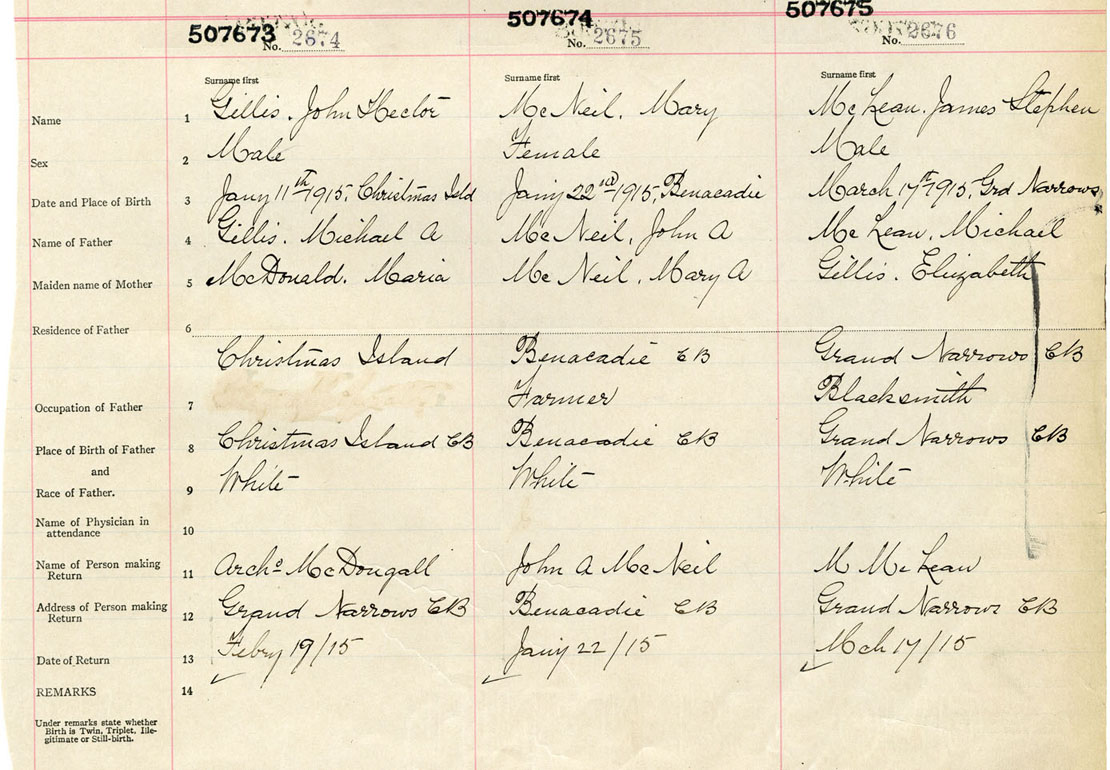 507673 507674 507675
No. 2674 No. 2675 No. 2676
Surname first Surname first Surname first
Name 1 Gillis. John Hector McNeil. Mary McLean. James Stephen
Sex 2 Male Female Male
Date and Place of Birth 3 Jany 11th 1915, Christmas Isld Jany 22nd 1915, Benacadie March 17th 1915, Grd Narrows
Name of Father 4 Gillis. Michael A McNeil, John A McLean. Michael
Maiden name of Mother 5 McDonald. Maria McNeil. Mary A Gillis. Elizabeth
Residence of Father 6
Christmas Island Benacadie CB Grand Narrows CB
Occupation of Father 7 Farmer Blacksmith
Place of Birth of Father 8 Christmas Island CB Benacadie CB Grand Narrows CB
and
Race of Father. 9 White White White
Name of Physician in
attendance 10
Name of Person making
Return 11 Archd McDougall John A McNeil M McLean
Address of Person making
Return 12 Grand Narrows CB Benacadie CB Grand Narrows CB
Date of Return 13 Febry 19/15 Jany 22/15 Mch 17/15
REMARKS 14
Under remarks state whether
Birth is Twin, Triplet, Ille-
gitimate or Still-birth.